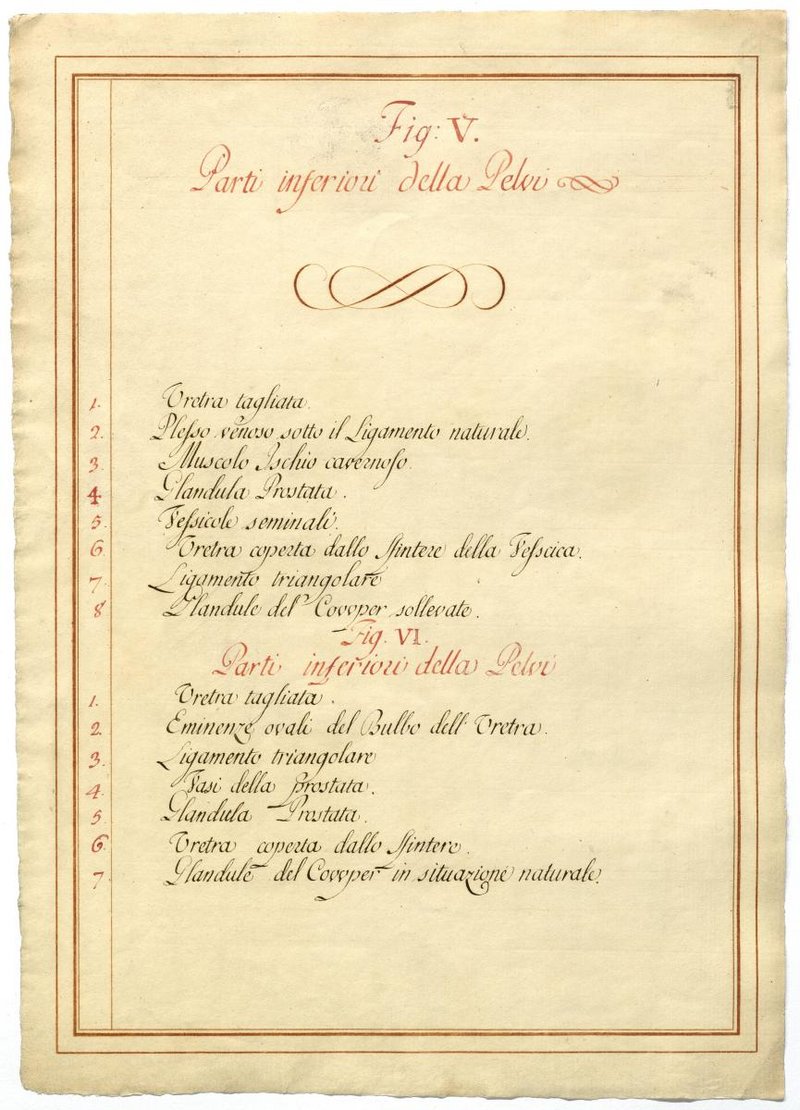 Fig: V.
Parti inferiori della Pelvi
1. Vretra tagliata.
2. Plesso venoso sotto il Ligamento naturale.
3. Muscolo Ischio cavernoso.
4. Glandula Prostata.
5. Vessicole seminali.
6. Vretra coperta dallo Sfintere della Vesscica.
7. Ligamento triangolare
8. Glandule del Covvper sollevate.
Fig. VI.
Parti inferiori della Pelvi
1. Vretra tagliata.
2. Eminenze ovali del Bulbo dell' Vretra.
3. Ligamento triangolare
4. Vasi della prostata.
5. Glandula Prostata.
6. Vretra coperta dallo Sfintere.
7. Glandule del Covvper in situazione naturale.